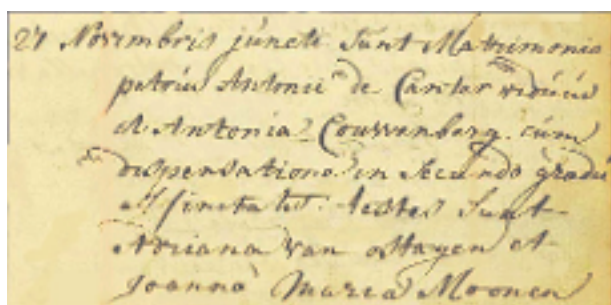 27 Novembris juncti sunt Matrimonio
petrus Antonii de Canter viduus
et Antonia Couwenberg cum
dispensatione in secundo gradu
affinitatis. testes sunt
Adriana van Hagen et
Joanna Maria Moonen